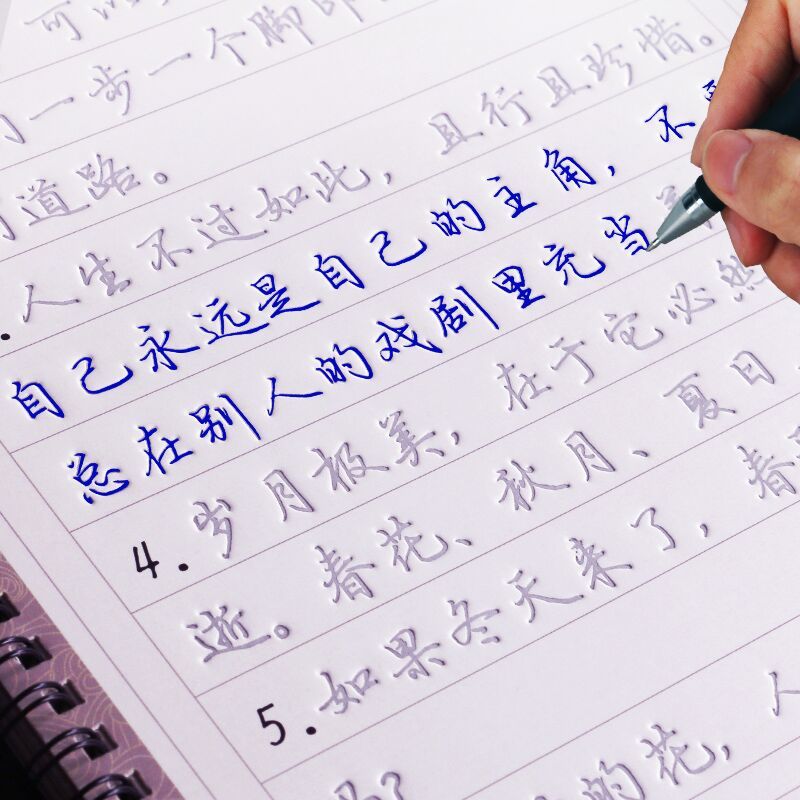 可以
一步一个脚印
道路。
. 人生不过如此，且行且珍惜。
自己永远是自己的主角，不
总在别人的戏剧里充当
4. 岁月极美，在于它必然
逝。春花、秋月、夏日、
5. 如果冬天来了，春
的花，人